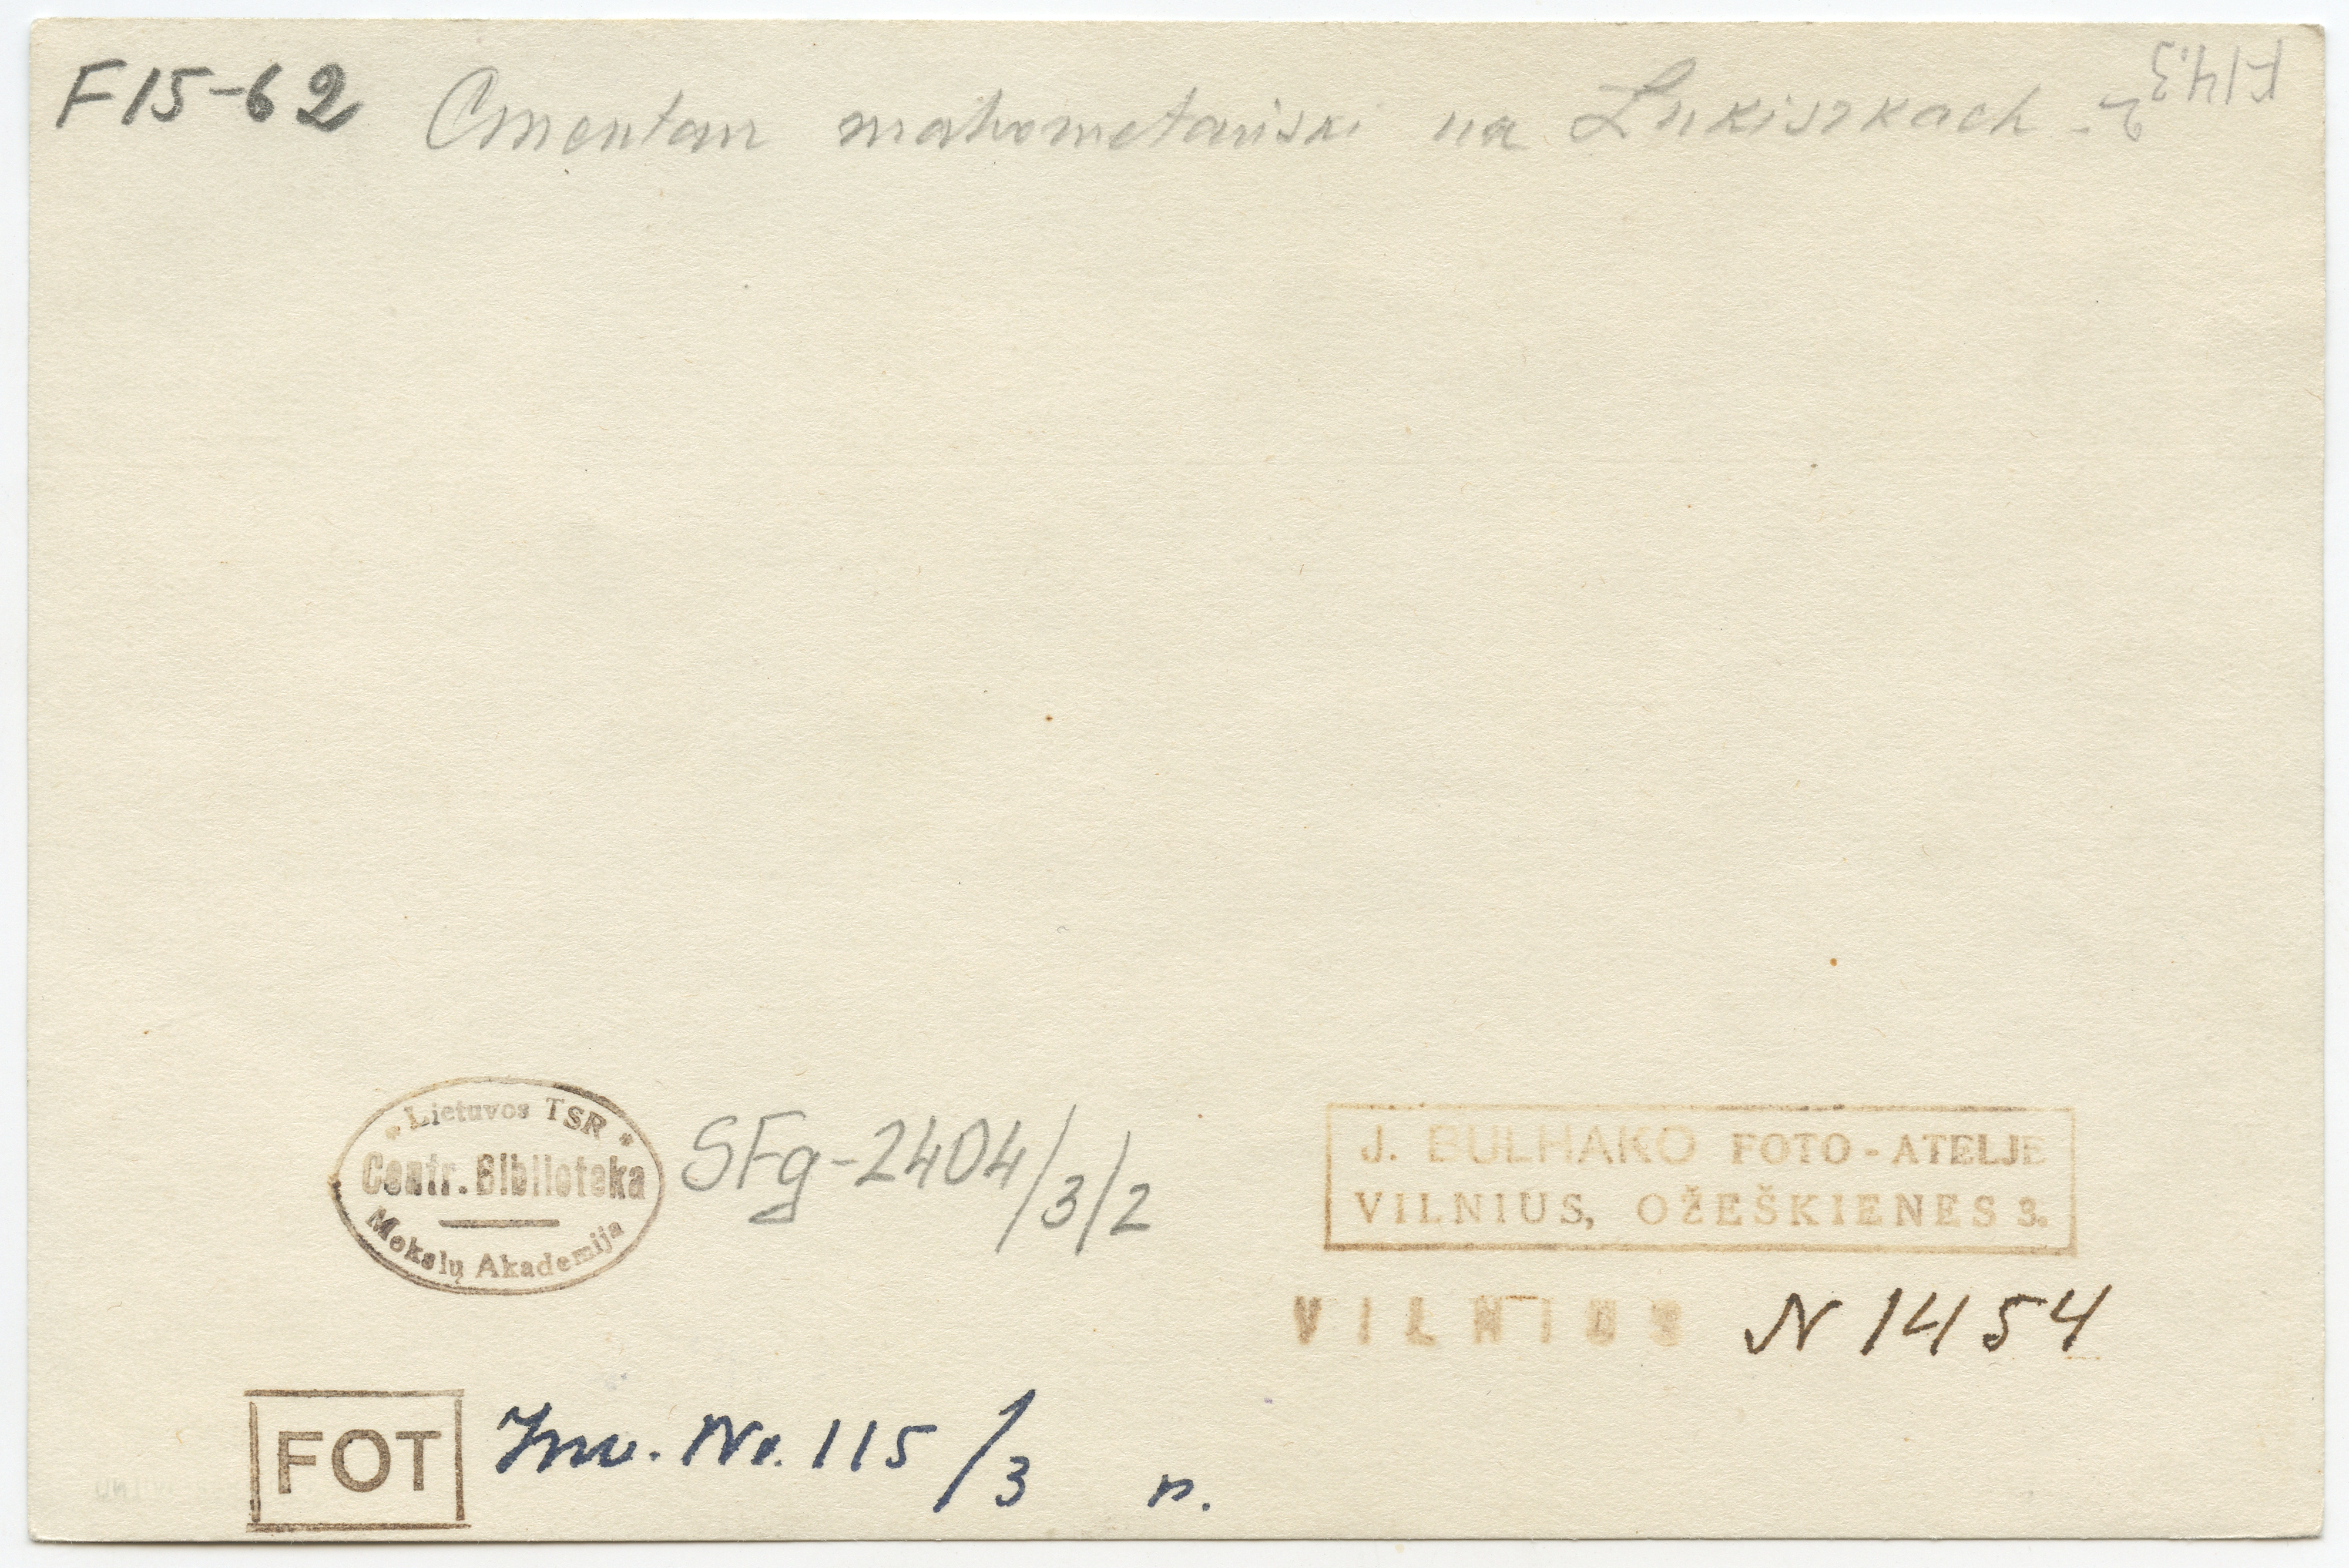 F15-62 Cmentarz mahometański na Łukiszkach - 2
F14.3
Lietuvos TSR
Centr. Biblioteka
Mokslų Akademija
SFg-2404/3/2
J. BULHAKO FOTO-ATELJE
VILNIUS, OŽEŠKIENES 3.
VILNIUS N 1454
FOT Inv. No. 115/3 n.